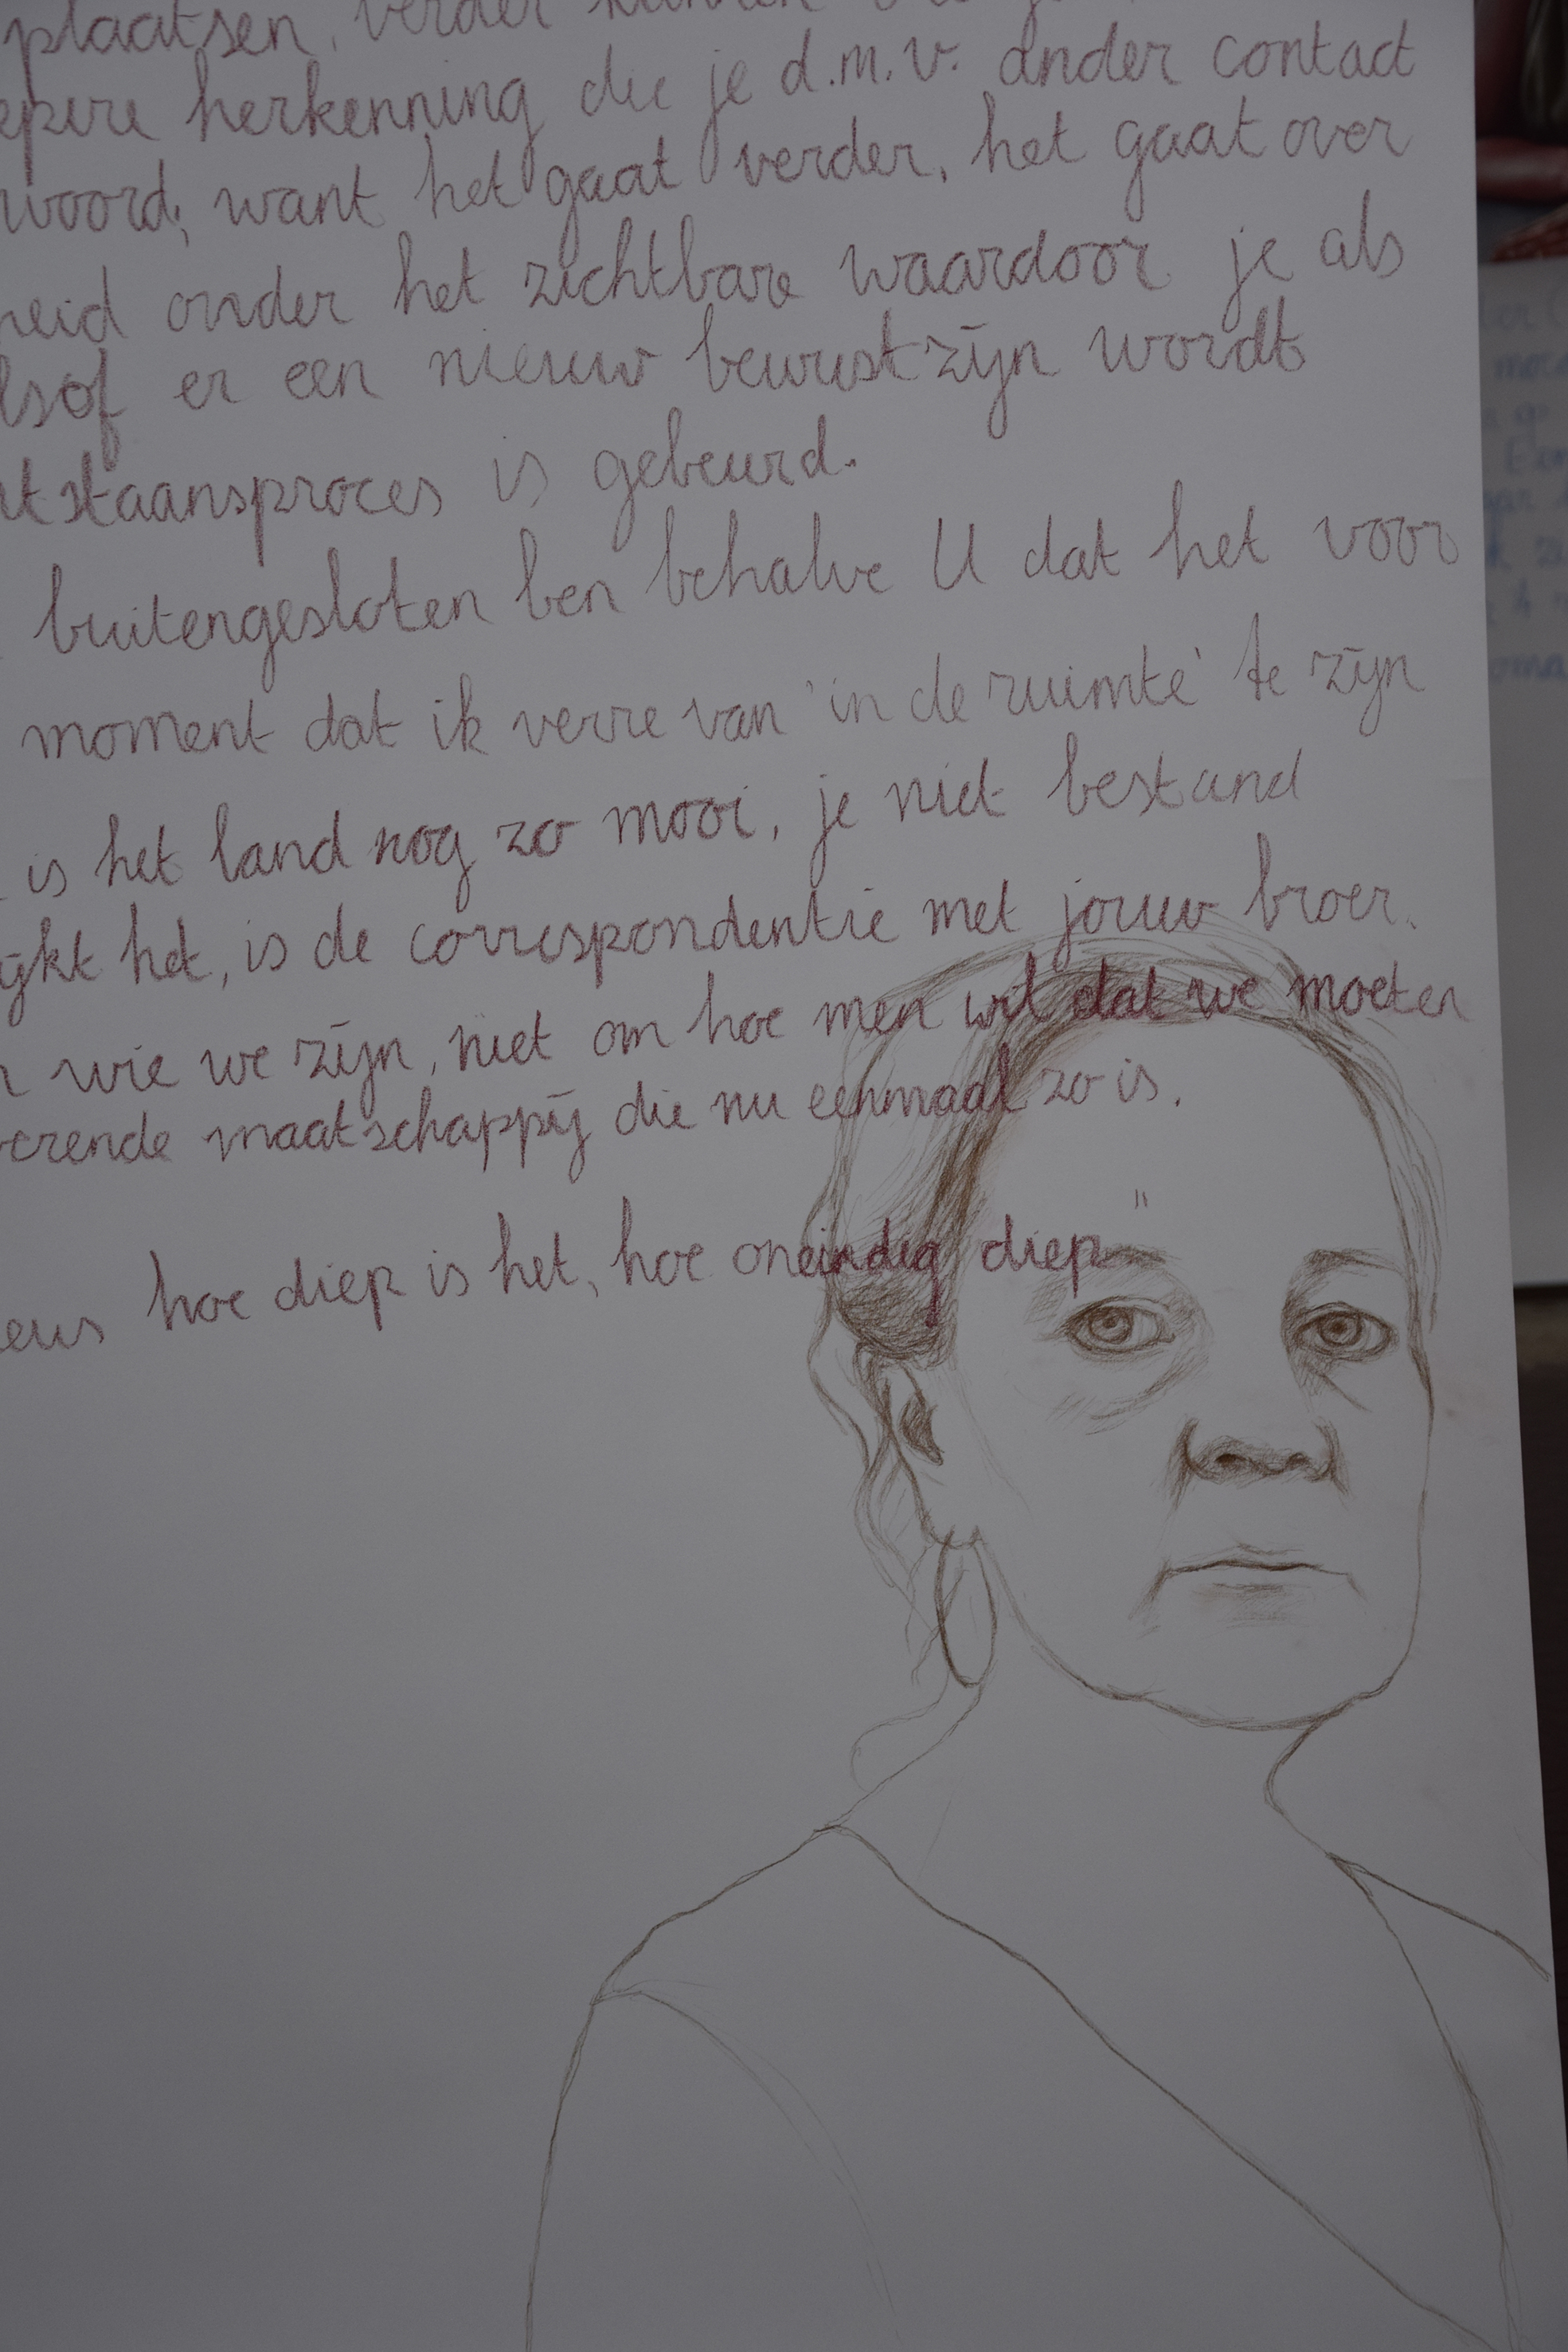 plaatsen, verder
herkenning die je d.m.v. ander contact
woord, want het gaat verder, het gaat over
heid onder het zichtbare waardoor je als
lsof er een nieuw bewustzijn wordt
tstaansproces is gebeurd.
buitengesloten ben behalve U dat het voor
moment dat ik verre van 'in de ruimte' te zijn
is het land nog zo mooi, je niet bestand
ijkt het, is de correspondentie met jouw broer.
n wie we zijn, niet om hoe men wil dat we moeten
erende maatschappij die nu eenmaal zo is.
eus hoe diep is het, hoe oneindig diep"
oma